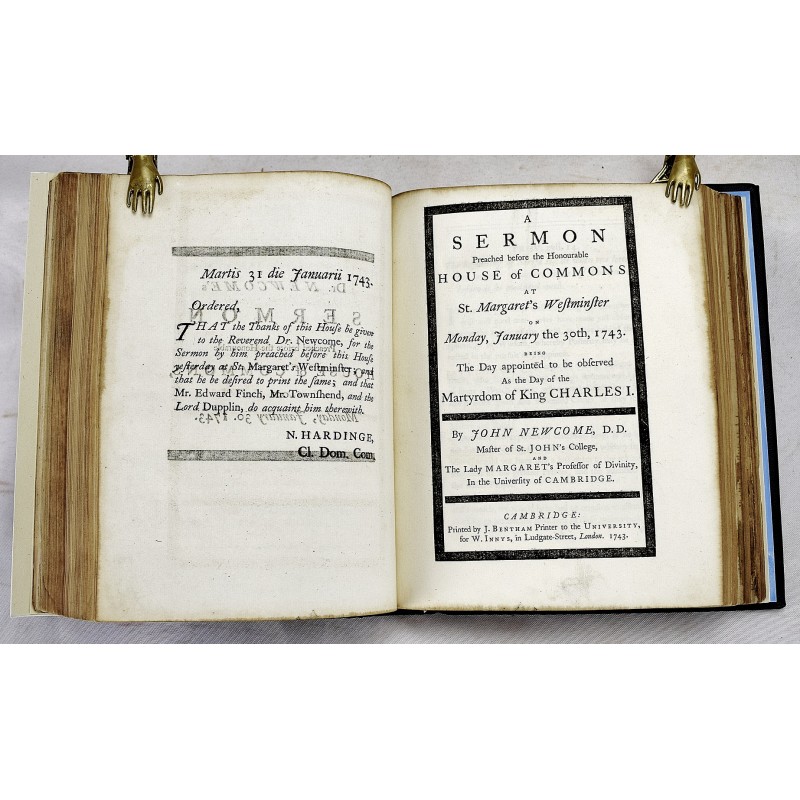 Martis 31 die Januarii 1743.
Ordered,
THAT the Thanks of this House be given
to the Reverend Dr. Newcome, for the
Sermon by him preached before this House
yesterday at St. Margaret's Westminster; and
that he be desired to print the same; and that
Mr. Edward Finch, Mr. Townshend, and the
Lord Dupplin, do acquaint him therewith.
N. HARDINGE,
Cl. Dom. Com.
A
SERMON
Preached before the Honourable
HOUSE of COMMONS
AT
St. Margaret's Westminster
ON
Monday, January the 30th, 1743.
BEING
The Day appointed to be observed
As the Day of the
Martyrdom of King CHARLES I.
By JOHN NEWCOME, D. D.
Master of St. JOHN's College,
AND
The Lady MARGARET's Professor of Divinity,
In the University of CAMBRIDGE.
CAMBRIDGE:
Printed by J. BENTHAM Printer to the UNIVERSITY,
for W. INNYS, in Ludgate-Street, London. 1743.